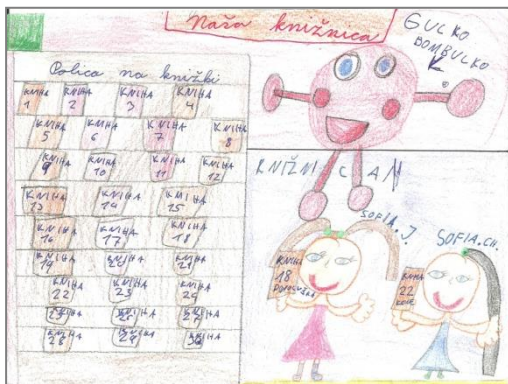 Naša knižnica
GULKO
BOMBULKO
Polica na knižki
KNIHA 1 KNIHA 2 KNIHA 3 KNIHA 4
KNIHA 5 KNIHA 6 KNIHA 7 KNIHA 8
KNIHA 9 KNIHA 10 KNIHA 11 KNIHA 12
KNIHA 13 KNIHA 14 KNIHA 15
KNIHA 16 KNIHA 17 KNIHA 18
KNIHA 19 KNIHA 20 KNIHA 21
KNIHA 22 KNIHA 23 KNIHA 24
KNIHA KNIHA KNIHA 27
KNIHA 28 KNIHA KNIHA
KNIŽNIČAN
SOFIA.J.
SOFIA.CH.
KNIHA
18
KNIHA
22